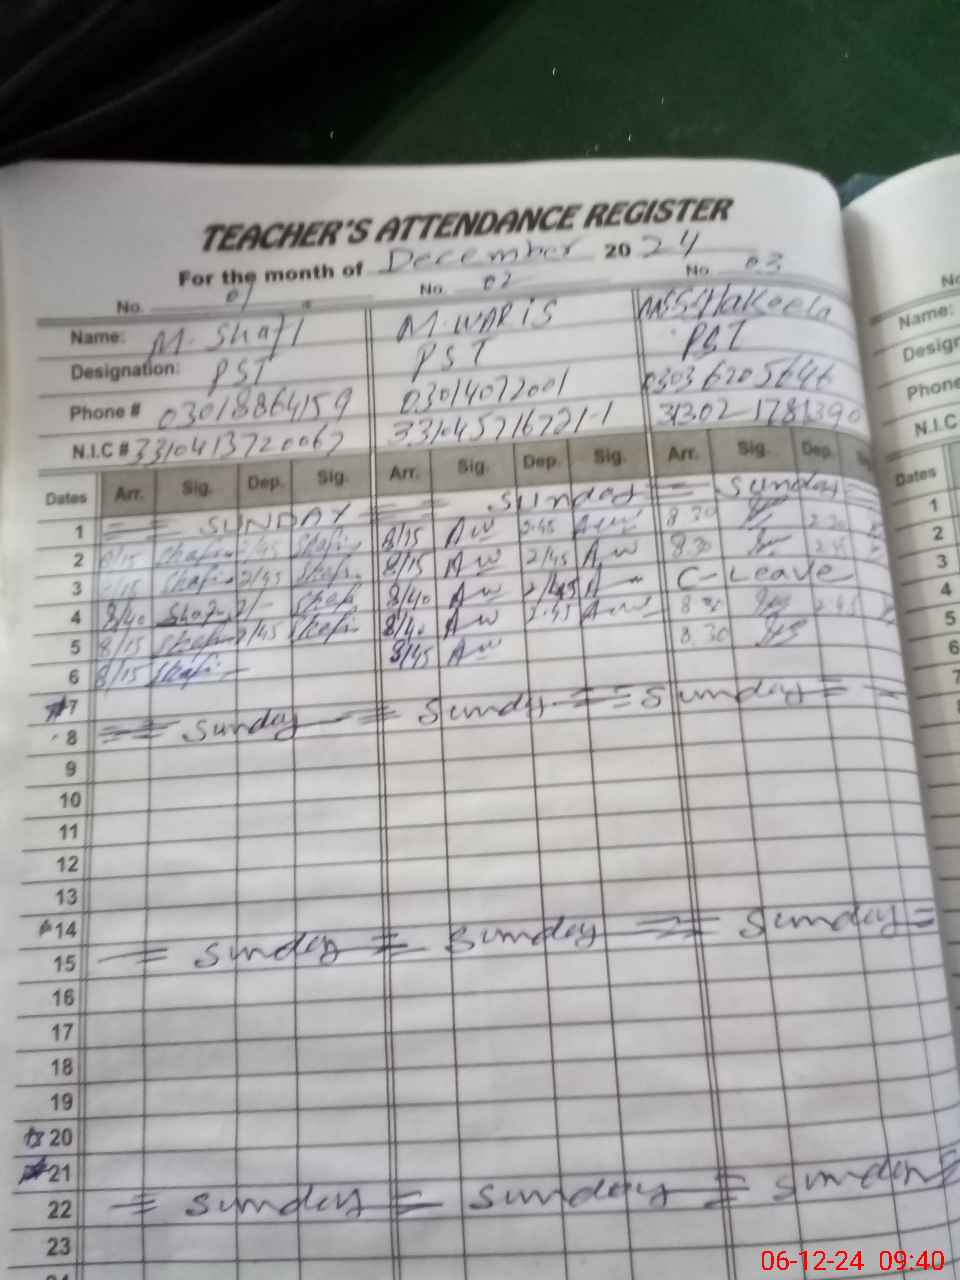 TEACHER'S ATTENDANCE REGISTER
For the month of December 2024
No. 01 No. 02 No. 03
Name: M. Shafi M. WARIS MISS Shakeela
Designation: PST PST PST
Phone # 03018864159 03014072001 03036205646
N.I.C # 3310413720067 331045716721-1 31302-1781390
Dates Arr. Sig. Dep. Sig. Arr. Sig. Dep. Sig. Arr. Sig. Dep.
1 == SUNDAY == Sunday == Sunday =
2 8/15 Shafi 2/45 Shafi 8/15 Aw 2:45 Aw 8.30 2.30
3 8/15 Shafi 2/45 Shafi 8/15 Aw 2/45 Aw 8.30 2.45
4 8/40 Shafi 2/- Shafi 8/40 Aw 2/45 A C-Leave
5 8/15 Shafi 2/45 Shafi 8/40 Aw 2.45 Aw 8.30 2.45
6 8/15 Shafi 8/45 Aw 8.30
7
8 == Sunday = Sunday == Sunday ==
9
10
11
12
13
14
15 = Sunday = Sunday = Sunday =
16
17
18
19
20
21
22 = Sunday = Sunday = Sunday
23
24
No
Name:
Design
Phone
N.I.C
Dates
1
2
3
4
5
6
7
06-12-24 09:40